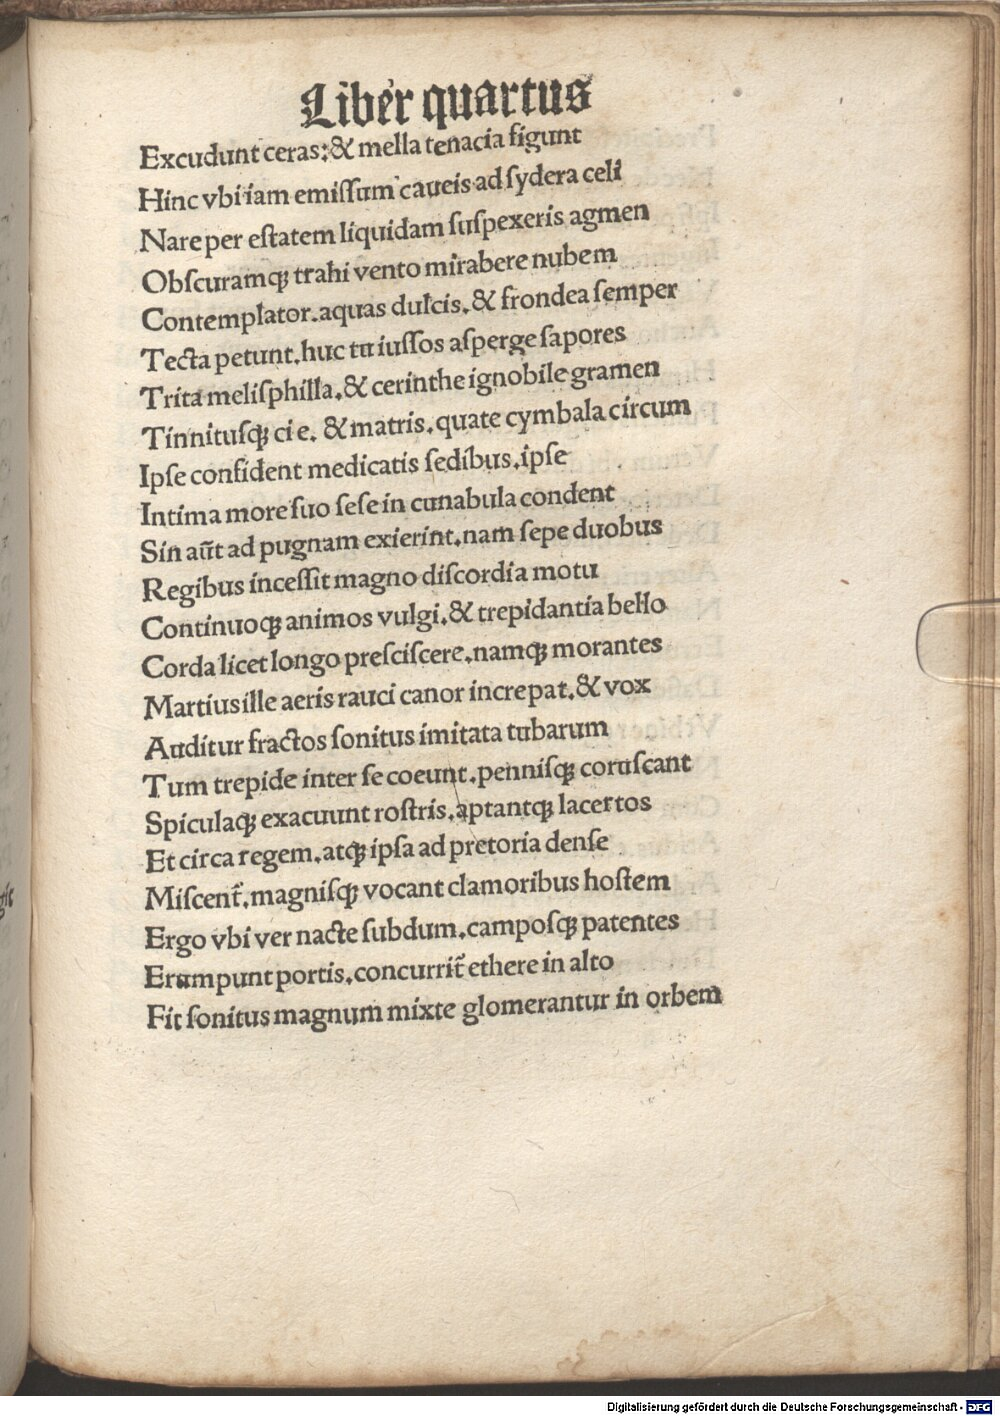 Liber quartus
Excudunt ceras:& mella tenacia figunt
Hinc vbi iam emiſſum caueis ad ſydera celi
Nare per eſtatem liquidam ſuſpexeris agmen
Obſcuramqꝫ trahi vento mirabere nubem
Contemplator.aquas dulcis.& frondea ſemper
Tecta petunt.huc tu iuſſos aſperge ſapores
Trita meliſphilla.& cerinthe ignobile gramen
Tinnituſqꝫ cie. & matris.quate cymbala circum
Ipſe conſident medicatis ſedibus.ipſe
Intima more ſuo ſeſe in cunabula condent
Sin aūt ad pugnam exierint.nam ſepe duobus
Regibus inceſſit magno diſcordia motu
Continuoqꝫ animos vulgi.& trepidantia bello
Corda licet longo preſciſcere.namqꝫ morantes
Martius ille aeris rauci canor increpat.& vox
Auditur fractos ſonitus imitata tubarum
Tum trepide inter ſe coeunt.penniſqꝫ coruſcant
Spiculaqꝫ exacuunt roſtris.aptantqꝫ lacertos
Et circa regem.atqꝫ ipſa ad pretoria denſe
Miſcent᷑.magniſqꝫ vocant clamoribus hoſtem
Ergo vbi ver nacte ſubdum.campoſqꝫ patentes
Erumpunt portis.concurrit᷑ ethere in alto
Fit ſonitus magnum mixte glomerantur in orbem
Digitalisierung gefördert durch die Deutsche Forschungsgemeinschaft - DFG